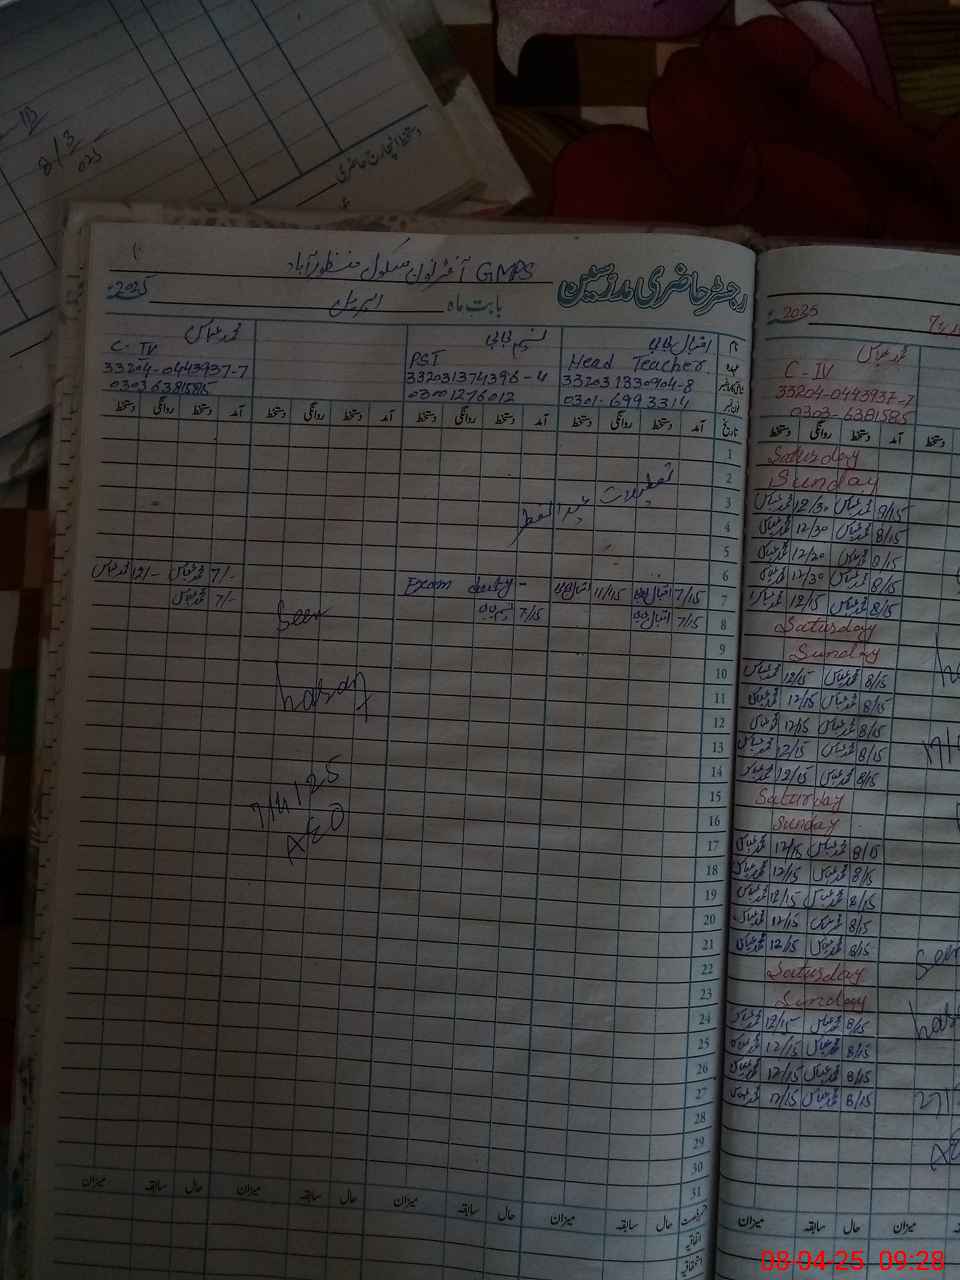 8/3
025
دستخط انچارج حاضری
رجسٹر حاضری مدرسین
GMPS آفٹرنون سکول منظور آباد
بابت ماہ اپریل 2025ء
نام اقبال بی بی نسیم بی بی محمد عباس
عہدہ Head Teacher PST C-IV
332031330904-8 332031374396-4 33204-0443937-7
0301-6993314 03001276012 03036381585
تاریخ آمد دستخط روانگی دستخط آمد دستخط روانگی دستخط آمد دستخط روانگی دستخط آمد دستخط روانگی دستخط
1
2
3 تعطیلات عید الفطر
4
5
6
7 7/15 11/15 Exam duty - 7/- محمد عباس 12/- محمد عباس
8 7/15 7/15 7/- محمد عباس
Seen
9
10
11
hasan
12
13
14
15
7/4/25
16
AEO
17
18
19
20
21
22
23
24
25
26
27
28
29
30
31
حال سابقہ میزان حال سابقہ میزان حال سابقہ میزان حال سابقہ میزان
اتفاقیہ
2025
محمد عباس
C-IV
33204-0443937-7
0303-6381585
آمد دستخط روانگی دستخط
Saturday
Sunday
8/15 محمد عباس 12/30 محمد عباس
8/15 محمد عباس 12/30 محمد عباس
8/15 محمد عباس 12/20 محمد عباس
8/15 محمد عباس 12/30 محمد عباس
8/15 محمد عباس 12/15 محمد عباس
Saturday
Sunday
8/15 محمد عباس 12/15 محمد عباس
8/15 محمد عباس 12/15 محمد عباس
8/15 محمد عباس 12/15 محمد عباس
8/15 محمد عباس 12/15 محمد عباس
8/15 محمد عباس 12/15 محمد عباس
Saturday
Sunday
8/15 محمد عباس 12/15 محمد عباس
8/15 محمد عباس 12/15 محمد عباس
8/15 محمد عباس 12/15 محمد عباس
8/15 محمد عباس 12/15 محمد عباس
8/15 محمد عباس 12/15 محمد عباس
Saturday
Sunday
8/15 محمد عباس 12/15 محمد عباس
8/15 محمد عباس 12/15 محمد عباس
8/15 محمد عباس 12/15 محمد عباس
8/15 محمد عباس 12/15 محمد عباس
حال سابقہ میزان
08-04-25 09:28